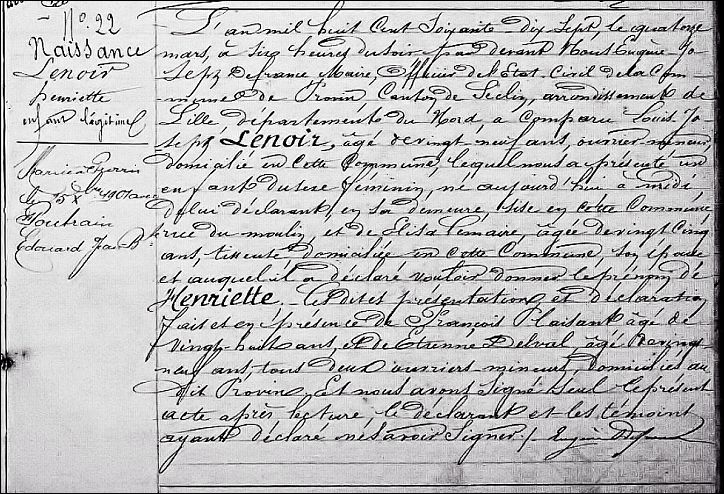 No. 22
Naissance
Lenoir
henriette
enfant légitime
Mariée à
le 5 Xbre 1901 avec
Houbrain
Edouard Jean Bte
L'an mil huit Cent Soixante-Dix Sept, le quatorze
mars, à six heures du soir, par devant Nous Eugène Jo
seph Defrance, Maire, Officier de l'Etat Civil de la Com-
mune de Provin, Canton de Seclin, arrondissement de
Lille, département du Nord, a Comparu Louis Jo
seph Lenoir, âgé de vingt neuf ans, ouvrier mineur,
domicilié en cette Commune, lequel nous a présenté un
enfant du sexe féminin, né aujourd'hui à midi,
de lui déclarant, en sa demeure, sise en cette Commune,
rue du moulin, et de Elisa Lemaire, âgée de vingt Cinq
ans, tisseuse, domiciliée en cette Commune, son épouse
et auquel il a déclaré vouloir donner le prénom de
Henriette. Les dites présentation et déclaration
fait et en présence de François Plaisant âgé de
vingt-huit ans, et de Etienne Delval, âgé de vingt
neuf ans, tous deux ouvriers mineurs, domiciliés au
dit Provin, Et nous avons signé seul le présent
acte après lecture, le déclarant et les témoins
ayant déclaré ne savoir signer ./. Eugène Defrance